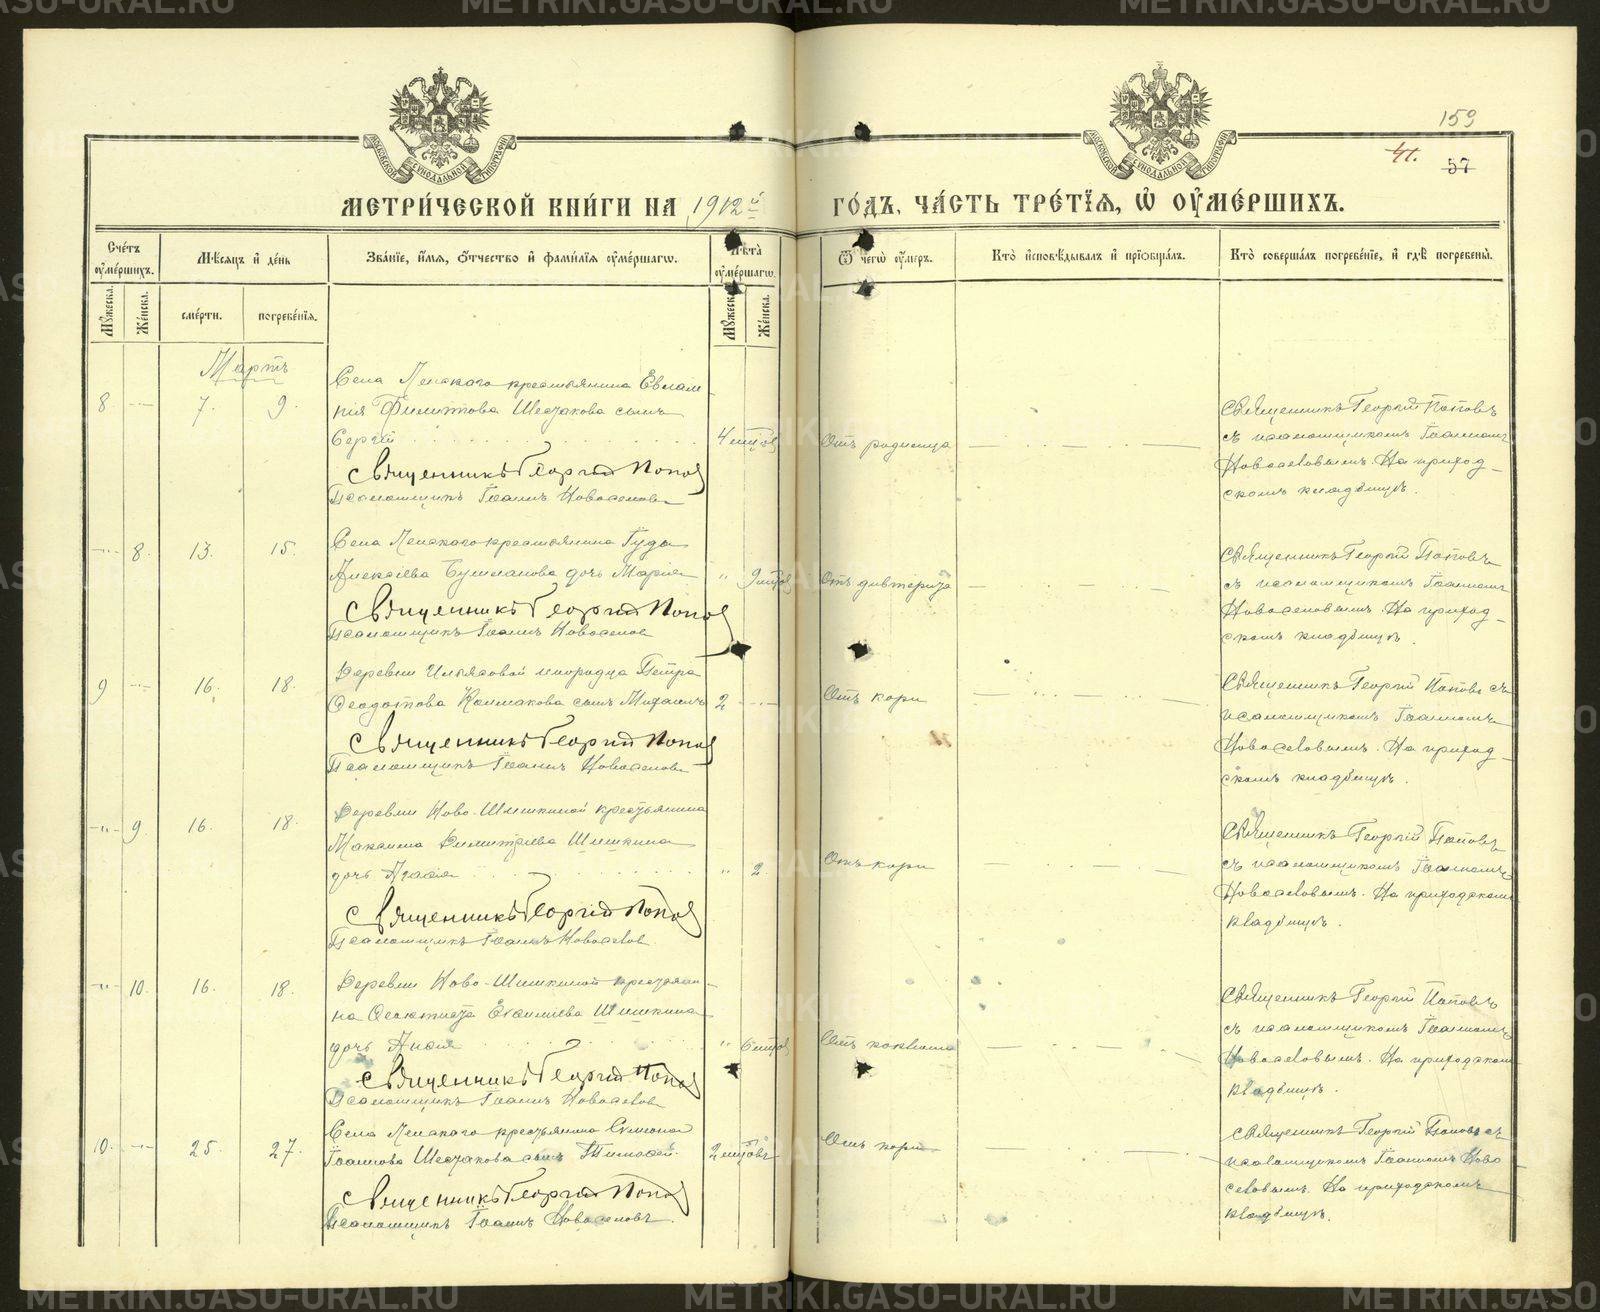 METRIKI.GASO-URAL.RU
159
41.
57
МОСКОВСКОЙ СѴНОДАЛЬНОЙ ТИПОГРАФІИ
МОСКОВСКОЙ СѴНОДАЛЬНОЙ ТИПОГРАФІИ
МЕТРИ́ЧЕСКОЙ КНИ́ГИ НА 1912й ГО́ДЪ, ЧА́СТЬ ТРЕ́ТІЯ, Ѽ ОУМЕ́РШИХЪ.
Сче́тъ оумéршихъ.
Мужеска.
Же́нска.
Мѣсяцъ и́ де́нь
сме́рти.
погребе́нія.
Зва́ніе, и́мя, ѻ́тчество и́ фами́лія оумéршагѡ.
Лѣта̀ оумéршагѡ.
Мужеска.
Же́нска.
Ѿ чегѡ̀ оу́меръ.
Кто̀ и́сповѣ́дывалъ и́ пріѡбща́лъ.
Кто̀ соверша́лъ погребе́ніе, и́ гдѣ̀ погребены̀.
Мартъ
8. 7. 9.
Села Ленскаго крестьянина Евлам
пія Филиппова Шесчакова сынъ
Сергій
4 мцов
Отъ родимца
Священникъ Георгій Попов
Псаломщикъ Іоаннъ Новоселовъ
Священникъ Георгій Поповъ
съ псаломщикомъ Іоанномъ
Новоселовымъ. На приход-
скомъ кладбищѣ.
8. 13. 15.
Села Ленскаго крестьянина Іуды
Алексіева Бушланова дочь Марія
" 9 мцов
Отъ дифтерита
Священникъ Георгій Попов
Псаломщикъ Іоаннъ Новоселов
Священникъ Георгій Поповъ
съ псаломщикомъ Іоанномъ
Новоселовымъ. На приход-
скомъ кладбищѣ.
9 16. 18.
Деревни Ильясовой инородца Петра
Ѳедотова Колмакова сынъ Михаилъ
2
Отъ кори
Священникъ Георгій Попов
Псаломщикъ Іоаннъ Новоселовъ
Священникъ Георгій Поповъ съ
псаломщикомъ Іоанномъ
Новоселовымъ. На приход-
скомъ кладбищѣ.
-"- 9. 16. 18.
Деревни Ново-Шишкиной крестьянина
Максима Димитріева Шишкина
дочь Агаѳія
" 2.
Отъ кори
Священникъ Георгій Попов
Псаломщикъ Іоаннъ Новоселов.
Священникъ Георгій Поповъ
съ псаломщикомъ Іоанномъ
Новоселовымъ. На приходскомъ
кладбищѣ.
-"- 10. 16. 18.
Деревни Ново-Шишкиной крестьяни-
на Ѳеоктиста Евѳиміева Шишкина
дочь Анѳія
" 6 мцов
Отъ коклюша
Священникъ Георгій Попов
Псаломщикъ Іоаннъ Новоселов
Священникъ Георгій Поповъ
съ псаломщикомъ Іоанномъ
Новоселовымъ. На приходском
кладбищѣ.
10. 25. 27.
Села Ленскаго крестьянина Симеона
Іоаннова Шесчакова сынъ Тимоѳей.
2 мцовъ
Отъ кори
Священникъ Георгій Попов
Псаломщикъ Іоаннъ Новоселовъ.
Священникъ Георгій Поповъ съ
псаломщикомъ Іоанномъ Ново
селовымъ. На приходскомъ
кладбищѣ.
METRIKI.GASO-URAL.RU